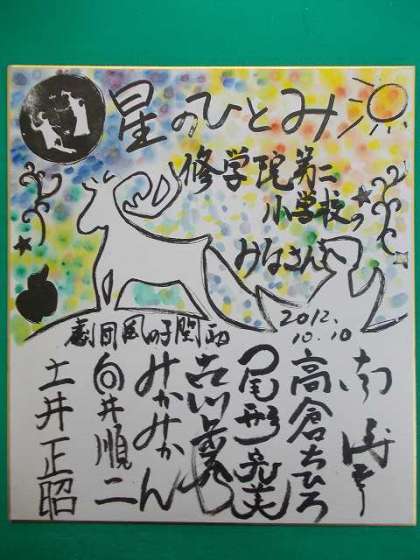 星のひとみ
修学院第二
小学校の
みなさんへ
劇団風の子関西
2012.
10.10
高倉ちひろ
尾形亮美
みかみかん
向井順二
土井正昭